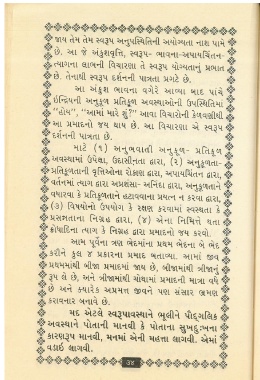 જાય તેમ તેમ સ્વરૂપ અનુપસ્થિતિની અયોગ્યતા નાશ પામે
છે. આ જે અંકુશવૃત્તિ, સ્વરૂપ- ભાવના-અપાયચિંતન-
ત્યાગના લાભની વિચારણા તે સ્વરૂપ યોગ્યતાનું પ્રભાત
છે. તેનાથી સ્વરૂપ દર્શનની પાત્રતા પ્રગટે છે.
આ અંકુશ ભાવના વગેરે આવ્યા બાદ પાંચે
ઇન્દ્રિયની અનુકૂળ પ્રતિકૂળ અવસ્થાઓની ઉપસ્થિતિમાં
“હોય”, “આમાં મારે શું?” આવા વિચારોની કેળવણીથી
આ પ્રમાદનો જય થાય છે. આ વિચારણા એ સ્વરૂપ
દર્શનની પાત્રતા છે.
માટે (૧) અનુભવાતી અનુકૂળ- પ્રતિકૂળ
અવસ્થામાં ઉપેક્ષા, ઉદાસીનતા દ્વારા, (૨) અનુકૂળતા-
પ્રતિકૂળતાની વૃત્તિઓના રોકાણ દ્વારા, અપાયચિંતન દ્વારા,
વર્તનમાં ત્યાગ દ્વારા અપ્રશંસા- અનિંદા દ્વારા, અનુકૂળતાને
વધારવા કે પ્રતિકૂળતાને હટાવવાના પ્રયત્ન ન કરવા દ્વારા,
(૩) વિષયોનો ઉપયોગ કે રક્ષણ કરવામાં સ્વસ્થતા કે
પ્રસન્નતાના નિગ્રહ દ્વારા, (૪) એના નિમિત્તે થતા
ક્રોધાદિના ત્યાગ કે નિગ્રહ દ્વારા પ્રમાદનો જય કરવો.
આમ પૂર્વના ત્રણ ભેદમાંના પ્રથમ ભેદના બે ભેદ
કરીને કુલ ૪ પ્રકારના પ્રમાદ બતાવ્યા. આમાં જીવ
પ્રથમમાંથી બીજા પ્રમાદમાં જાય છે, બીજામાંથી ત્રીજાનું
રૂપ લે છે, અને ત્રીજામાંથી ચોથામાં પ્રમાદની માત્રા વધે
છે અને ક્યારેક અપ્રમત્ત જીવને પણ સંસાર ભ્રમણ
કરાવનાર બનાવે છે.
મદ એટલે સ્વરૂપાવસ્થાને ભુલીને પૌદ્ગલિક
અવસ્થાને પોતાની માનવી કે પોતાના સુખદુઃખના
કારણરૂપ માનવી, મનમાં એની મહત્તા લાગવી. એમાં
વડાઇ લાગવી.
૩૪